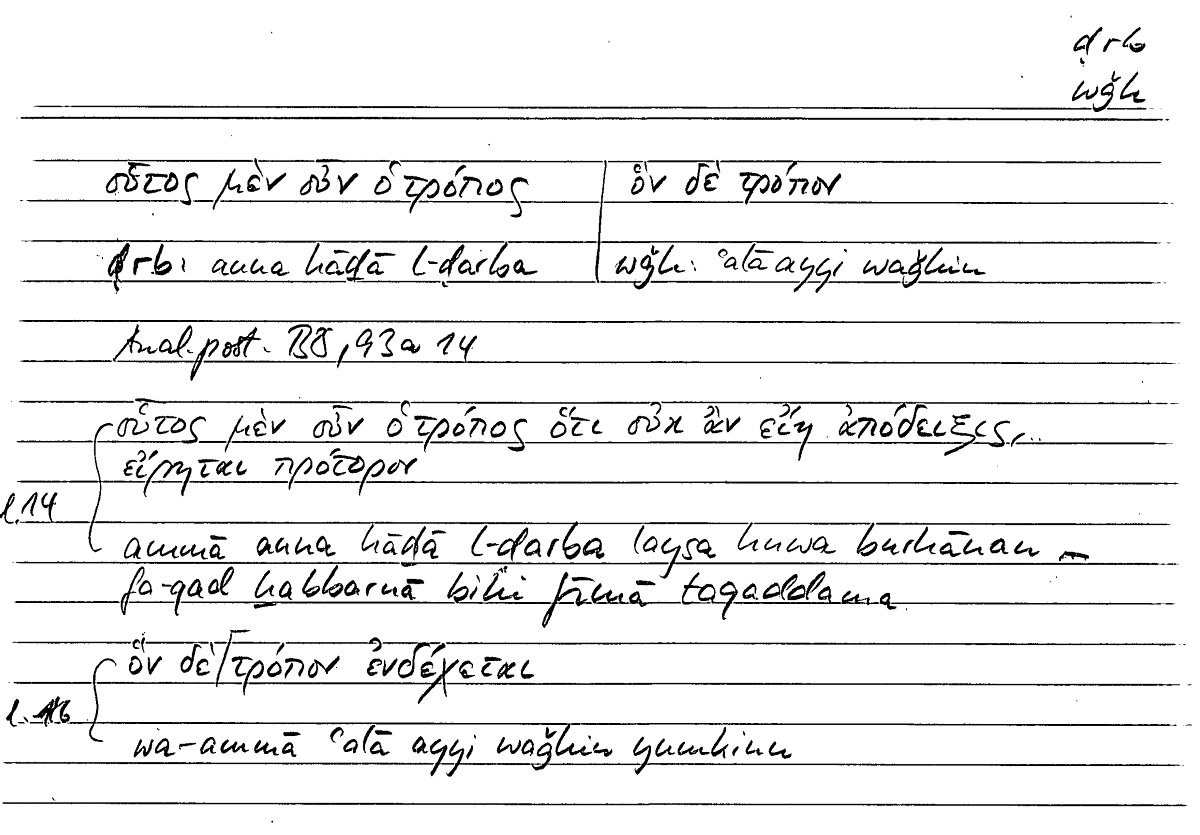 ḍrb
wǧh
οὗτος μὲν οὖν ὁ τρόπος | ὃν δὲ τρόπον
ḍrb: anna hāḏā l-ḍarba | wǧh: ʿalā ayyi waǧhin
Anal. post. B8, 93a 14
οὗτος μὲν οὖν ὁ τρόπος ὅτι οὐκ ἂν εἴη ἀπόδειξις, ..
εἴρηται πρότορον
l. 14
ammā anna hāḏā l-ḍarba laysa huwa burhānan –
fa-qad ḫabbarnā bihi fīmā taqaddama
ὃν δὲ / τρόπον ἐνδέχεται
l. 16
wa-ammā ʿalā ayyi waǧhin yumkinu